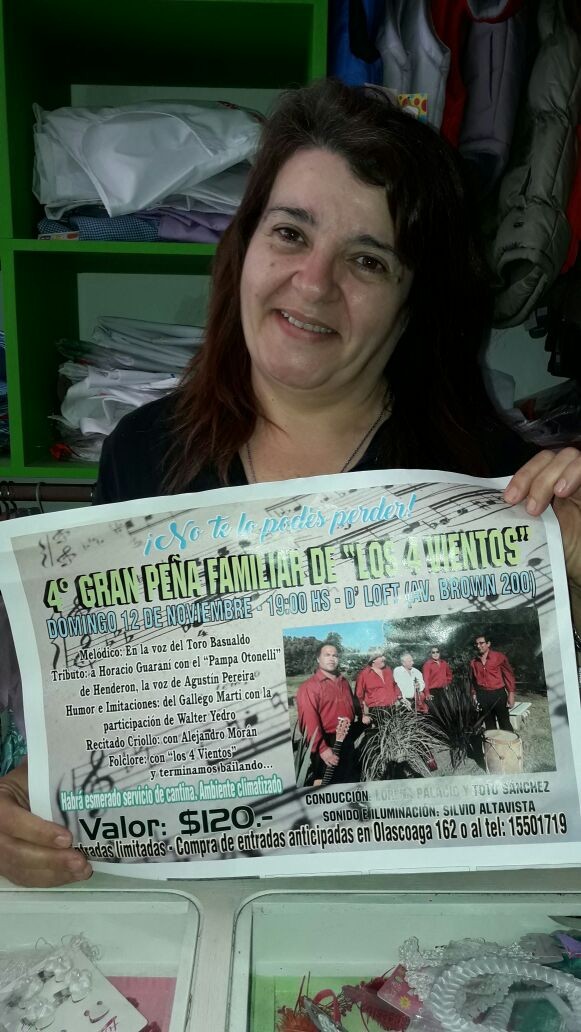 ¡No te lo podes perder!
4º GRAN PEÑA FAMILIAR DE "LOS 4 VIENTOS"
DOMINGO 12 DE NOVIEMBRE - 19:00 HS - D' LOFT (AV. BROWN 200)
Melódico: En la voz del Toro Basualdo
Tributo: a Horacio Guarani con el "Pampa Otonelli"
de Henderon, la voz de Agustín Pereira
Humor e Imitaciones: del Gallego Martí con la
participación de Walter Yedro
Recitado Criollo: con Alejandro Morán
Folclore: con "los 4 Vientos"
y terminamos bailando...
Habrá esmerado servicio de cantina. Ambiente climatizado
CONDUCCIÓN: LORENA PALACIO Y TOTO SANCHEZ
SONIDO E ILUMINACIÓN: SILVIO ALTAVISTA
Valor: $120.-
limitadas - Compra de entradas anticipadas en Olascoaga 162 o al tel: 15501719